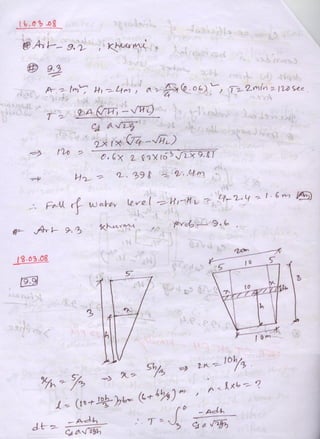 16.03.08
Art - 9.2 , Khurmi
9.3
A = 1m², H₁ = 4m, a = π/4 (0.06)², T = 2 min = 120 sec.
T = 2A(√H₁ - √H₂) / Cd a √2g
⇒ 120 = 2×1×(√4 - √H₂) / 0.6 × 2.83×10⁻³ √2×9.81
H₂ = 2.398 = 2.4m
∴ Fall of water level = H₁ - H₂ = 4 - 2.4 = 1.6 m Ans
Art 9.3 Khurmi , prob - 9.6.
18.03.08
9.9
5
3
x
h
20m
5 10 5
x 10 x
dh
3
h
10m
x/h = 5/3 ⇒ x = 5h/3 ⇒ 2x = 10h/3.
A = l×b = ?
dt = -Adh / Cd a √2gh
∴ T = ∫ -Adh / Cd a √2gh